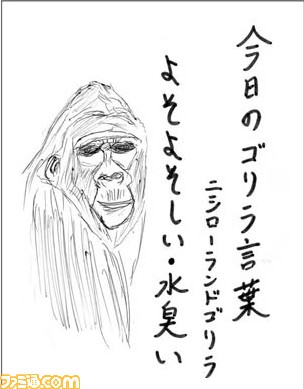 今日のゴリラ言葉
ニシローランドゴリラ
よそよそしい・水臭い
ファミ通.com